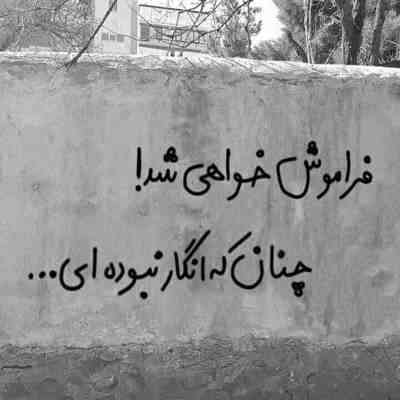 فراموش خواهی شد!
چنان که انگار نبوده ای...